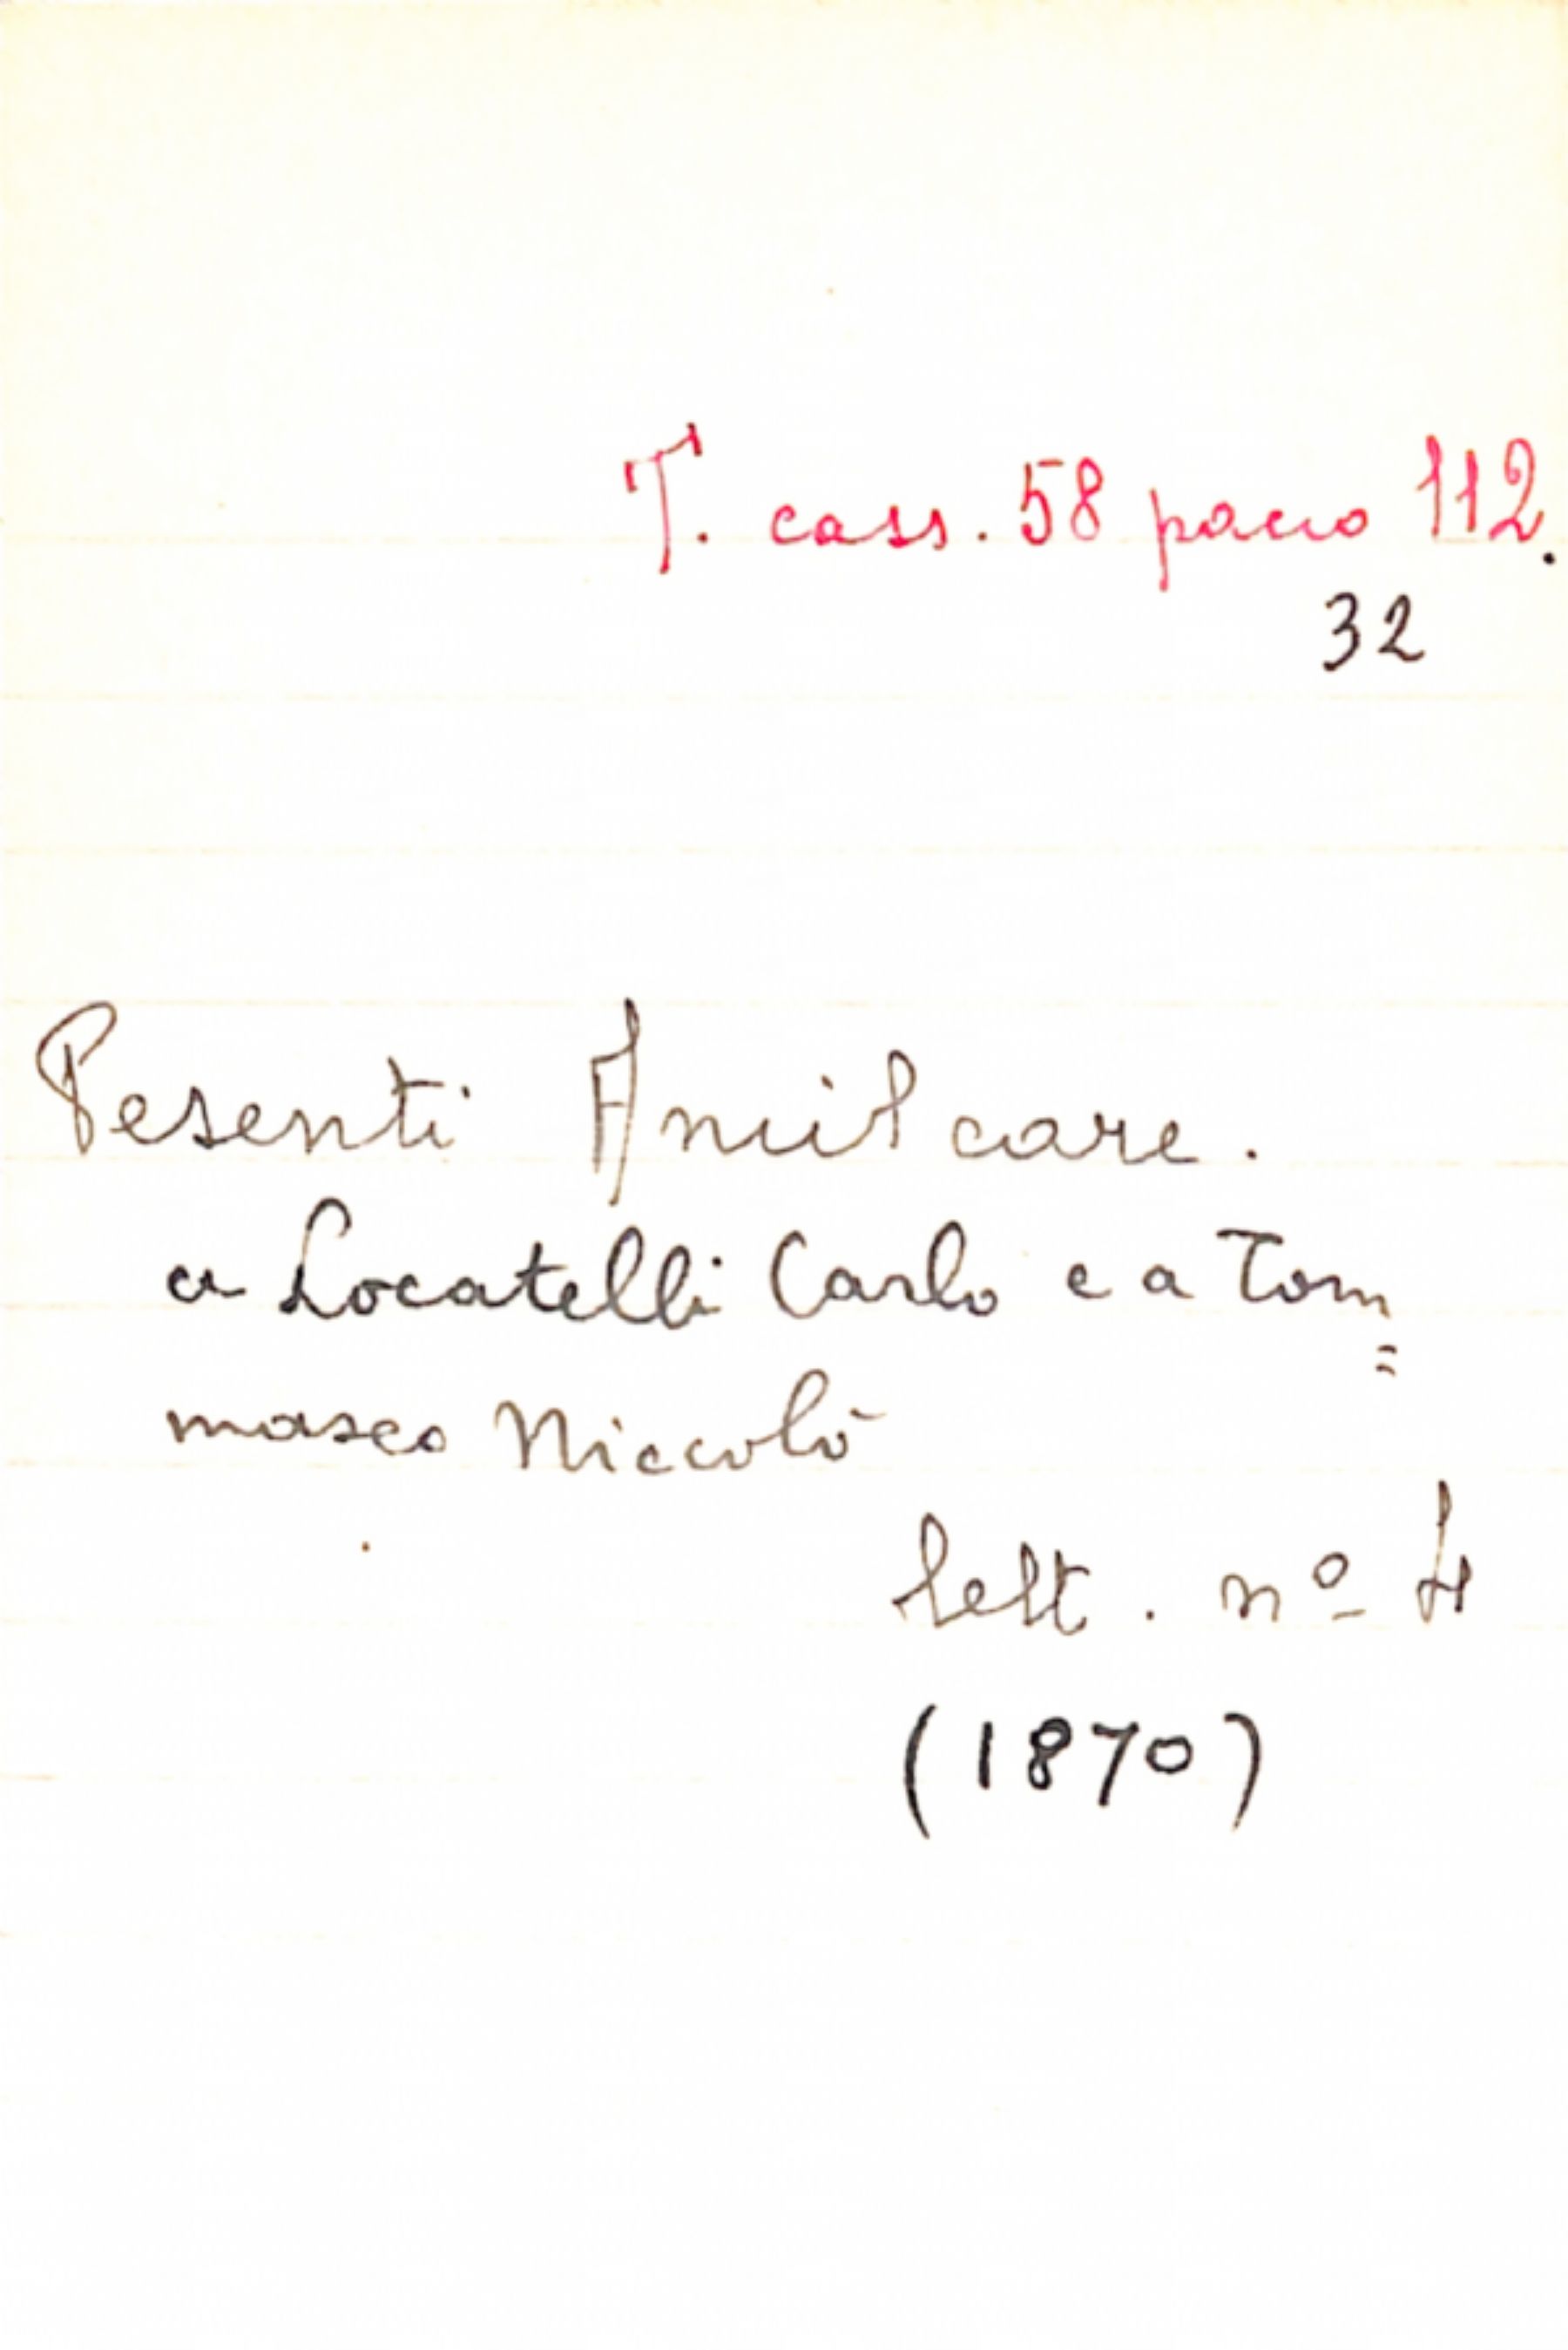 T. cass. 58 pacco 112.
32
Pesenti Amilcare.
a Locatelli Carlo e a Tom=
maseo Niccolò
lett. nº 4
(1870)